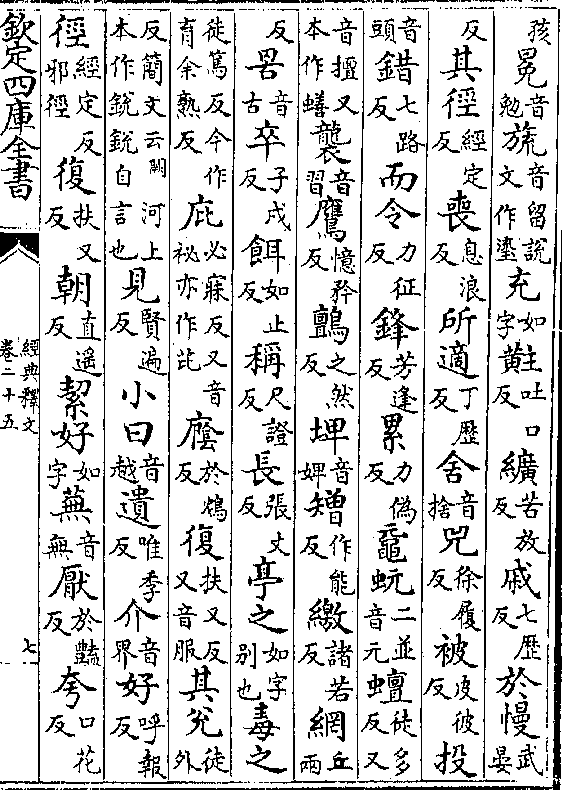 孩冕音勉旒音留說文作瑬充如字黈吐口反纊苦放反戚七歷反於慢武晏
反其徑經定反喪息浪反所適丁歷反舍音捨兕徐履反被皮彼反投
音頭錯七路反而令力征反鋒芳逢反累力偽反黿蚖二並音元蟺徒多反又
音擅又本作蟮襲音習鷹憶矜反鸇之然反埤音婢矰作能反繳諸若反網丘兩
反罟音古卒子戌反餌如止反稱尺證反長張丈反亭之如字别也毒之
徒篤反今作育余熟反庇必寐反又音祕亦作廕於鴆反復扶又反又音服其兊徒外
反簡文云河上本作銳銳自言也見賢遍反小曰音越遺唯季反介音界好呼報反
徑經定反邪徑復扶又反朝直遥反絜好如字蕪音無厭於豔反夸口花反
欽定四庫全書
經典釋文
卷二十五
七